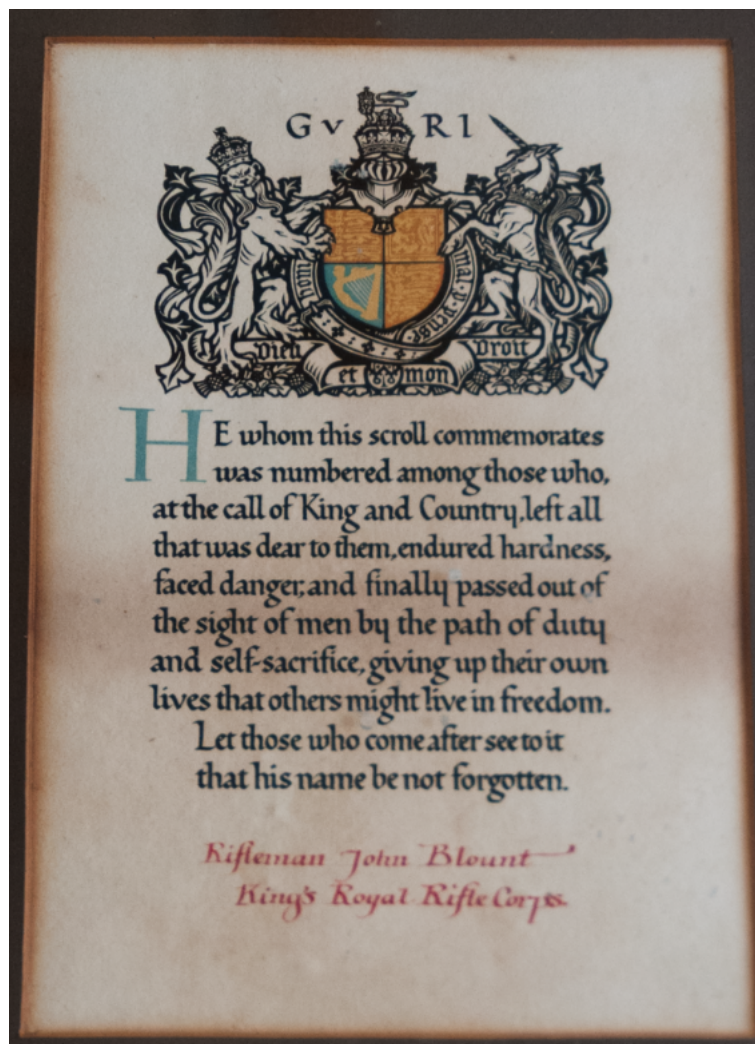 G V R I
HONI
MAL · Y · PENSE
Dieu et mon Droit
HE whom this scroll commemorates
was numbered among those who,
at the call of King and Country, left all
that was dear to them, endured hardness,
faced danger, and finally passed out of
the sight of men by the path of duty
and self-sacrifice, giving up their own
lives that others might live in freedom.
Let those who come after see to it
that his name be not forgotten.
Rifleman John Blount
King's Royal Rifle Corps